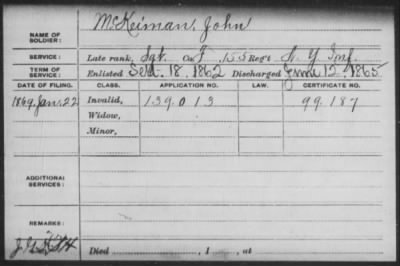 NAME OF SOLDIER: McKeirnan, John
SERVICE: Late rank, Sgt. Co. F, 155 Reg't N. Y. Inf.
TERM OF SERVICE: Enlisted Sept. 18, 1862 Discharged June 12, 1865
DATE OF FILING. CLASS. APPLICATION NO. LAW. CERTIFICATE NO.
1869, Jan. 22 Invalid, 139.013 99.187
Widow,
Minor,
ADDITIONAL SERVICES:
REMARKS:
Died , 1 , at